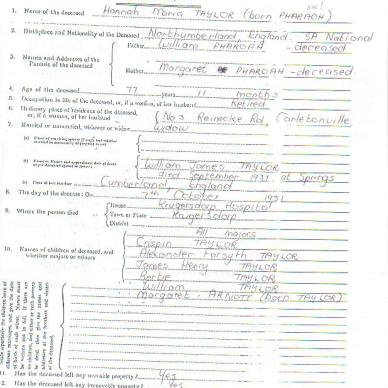 sic!
1. Name of the deceased Hannah Maria TAYLOR (born PHARAOH)
2. Birthplace and Nationality of the Deceased Northumberland, England. SA National
3. Names and Addresses of the Parents of the deceased
Father William PHAROAH - deceased
Mother Margaret PHAROAH - deceased
4. Age of the deceased 77 years 11 months
5. Occupation in life of the deceased, or, if a woman, of her husband Retired
6. Ordinary place of residence of the deceased, or, if a woman, of her husband No 3 Reinecke Rd, Carletonville
7. Married or unmarried, widower or widow Widow
William James TAYLOR
died September 1937 at Springs
Cumberland, England
8. The day of the deceased: On 7th October 1951
9. Where the person died
House Krugersdorp Hospital
Town or Place Krugersdorp
District
10. Names of children of deceased, and whether majors or minors
All majors
Crispin TAYLOR
Alexander Forsyth TAYLOR
James Henry TAYLOR
Bertie TAYLOR
William TAYLOR
Margaret ARNOTT (born TAYLOR)
11. Has the deceased left any movable property? Yes
2. Has the deceased left any immovable property? Yes